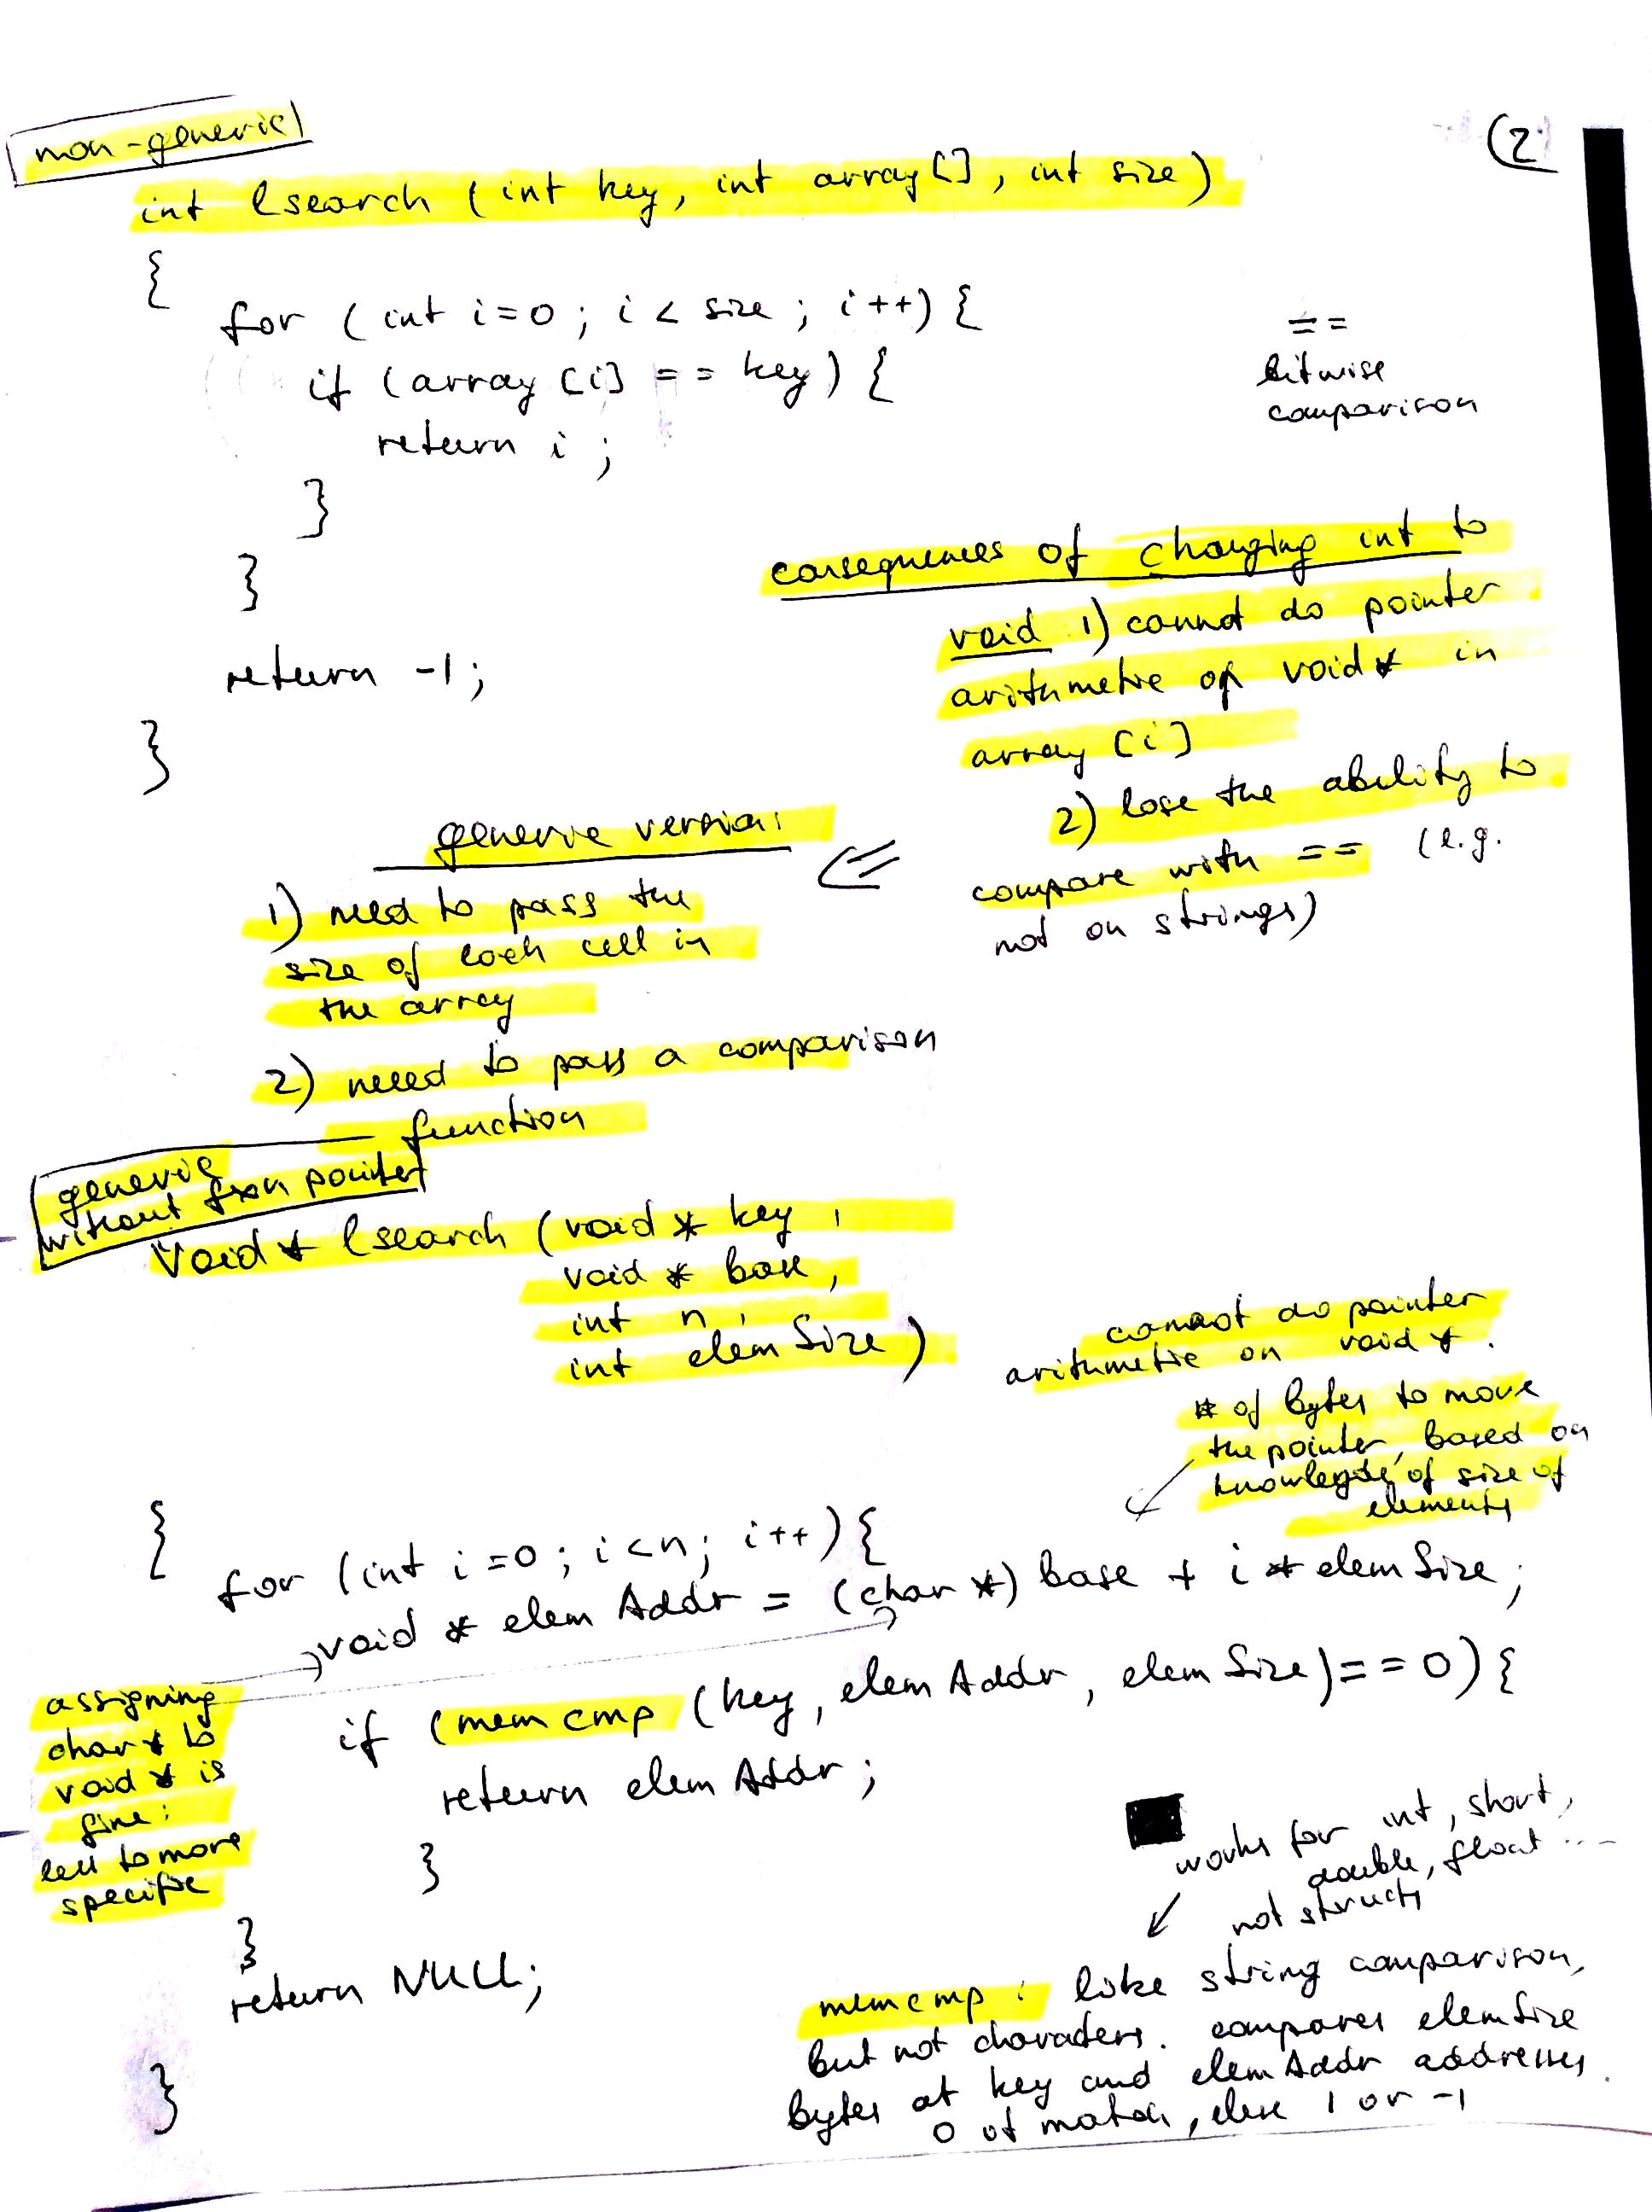 (2)
non-generic
int lsearch (int key, int array[], int size)
{
for (int i=0; i < size; i++) {
if (array[i] == key) {
return i;
}
}
return -1;
}
==
bitwise
comparison
consequences of changing int to
void 1) cannot do pointer
arithmetic on void* in
array [i]
2) lose the ability to
compare with == (e.g.
not on strings)
⇐
generic version:
1) need to pass the
size of each cell in
the array
2) need to pass a comparison
function
generic
without fxon pointer
void * lsearch (void * key,
void * base,
int n,
int elemSize)
cannot do pointer
arithmetic on void *.
# of bytes to move
the pointer, based on
knowledge of size of
elements
{
for (int i=0; i<n; i++){
void * elemAddr = (char *) base + i * elemSize;
if (memcmp (key, elemAddr, elemSize) == 0) {
return elemAddr;
}
}
return NULL;
}
assigning
char * to
void * is
fine:
less to more
specific
works for int, short,
double, float ...
not structs
memcmp: like string comparison,
but not characters. compares elemSize
bytes at key and elemAddr addresses.
0 if match, else 1 or -1